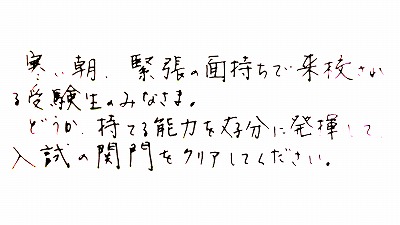 寒い朝、緊張の面持ちで来校され
る受験生のみなさま。
どうか、持てる能力を存分に発揮して、
入試の関門をクリアしてください。